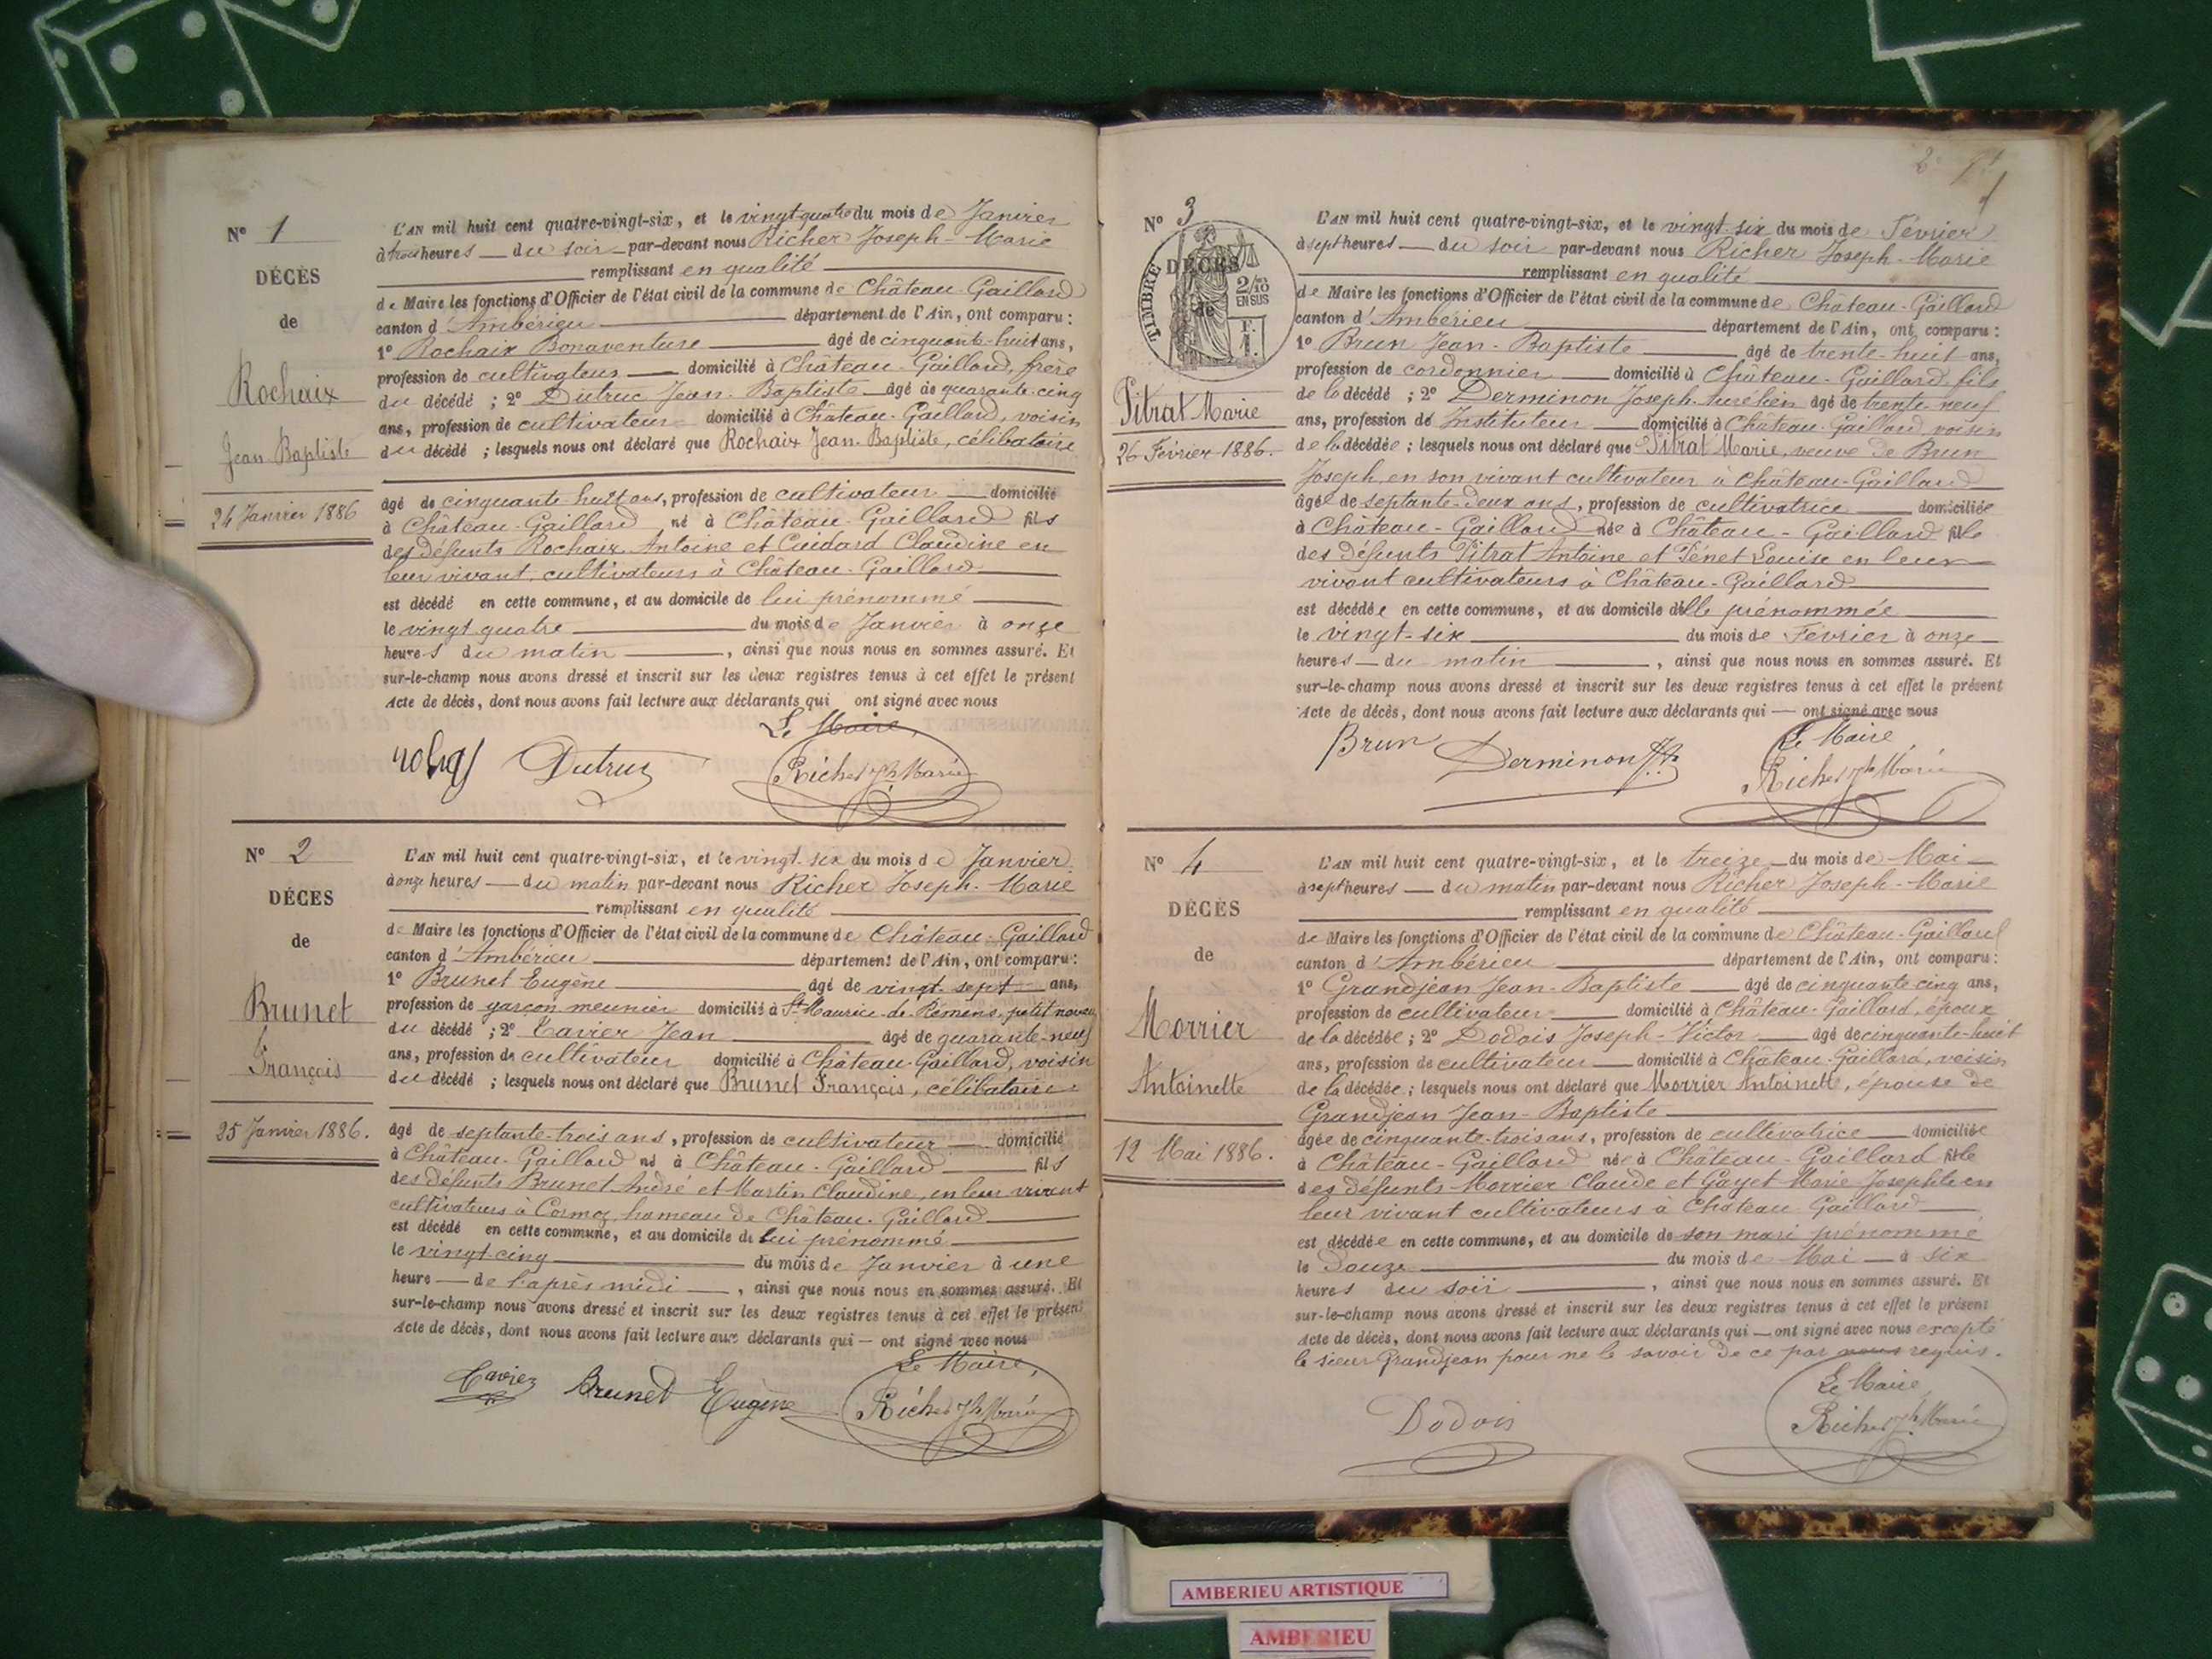 N° 1
DÉCÈS
de
Rochaix
Jean-Baptiste
24 Janvier 1886
L'AN mil huit cent quatre-vingt-six, et le vingt quatre du mois de Janvier
à trois heures du soir par-devant nous Richer Joseph-Marie
remplissant en qualité
de Maire les fonctions d'Officier de l'état civil de la commune de Château-Gaillard
canton d'Ambérieu département de l'Ain, ont comparu :
1° Rochaix Bonaventure âgé de cinquante-huit ans,
profession de cultivateur domicilié à Château-Gaillard, frère
du décédé ; 2° Dutruc Jean-Baptiste âgé de quarante-cinq
ans, profession de cultivateur domicilié à Château-Gaillard, voisin
du décédé ; lesquels nous ont déclaré que Rochaix Jean-Baptiste, célibataire
âgé de cinquante huit ans, profession de cultivateur domicilié
à Château-Gaillard né à Château-Gaillard fils
des défunts Rochaix Antoine et Cuidard Claudine en
leur vivant, cultivateurs à Château-Gaillard
est décédé en cette commune, et au domicile de lui prénommé
le vingt quatre du mois de Janvier à onze
heures du matin , ainsi que nous nous en sommes assuré. Et
sur-le-champ nous avons dressé et inscrit sur les deux registres tenus à cet effet le présent
Acte de décès, dont nous avons fait lecture aux déclarants qui ont signé avec nous
Le Maire,
Dutruc Richer Jh Marie
N° 2
DÉCES
de
Brunet
François
25 Janvier 1886.
L'AN mil huit cent quatre-vingt-six, et le vingt-six du mois de Janvier
à onze heures du matin par-devant nous Richer Joseph-Marie
remplissant en qualité
de Maire les fonctions d'Officier de l'état civil de la commune de Château-Gaillard
canton d'Ambérieu département de l'Ain, ont comparu :
1° Brunet Eugène âgé de vingt-sept ans,
profession de garçon meunier domicilié à St-Maurice-de-Rémens, petit neveu
du décédé ; 2° Cavier Jean âgé de quarante-neuf
ans, profession de cultivateur domicilié à Château-Gaillard, voisin
du décédé ; lesquels nous ont déclaré que Brunet François, célibataire
âgé de septante-trois ans, profession de cultivateur domicilié
à Château-Gaillard né à Château-Gaillard fils
des défunts Brunet André et Martin Claudine, en leur vivant
cultivateurs à Cormoz, hameau de Château-Gaillard
est décédé en cette commune, et au domicile de lui prénommé
le vingt-cinq du mois de Janvier à une
heure de l'après midi , ainsi que nous nous en sommes assuré. Et
sur-le-champ nous avons dressé et inscrit sur les deux registres tenus à cet effet le présent
Acte de décès, dont nous avons fait lecture aux déclarants qui — ont signé avec nous
Le Maire,
Cavier Brunet Eugène Richer Jh Marie
N° 3
DÉCÈS
de
TIMBRE
2/10
EN SUS
F.
1.
Pitrat Marie
26 Février 1886.
L'AN mil huit cent quatre-vingt-six, et le vingt-six du mois de Février
à sept heures du soir par-devant nous Richer Joseph-Marie
remplissant en qualité
de Maire les fonctions d'Officier de l'état civil de la commune de Château-Gaillard
canton d'Ambérieu département de l'Ain, ont comparu :
1° Brun Jean-Baptiste âgé de trente-huit ans,
profession de cordonnier domicilié à Château-Gaillard, fils
de la décédé ; 2° Derminon Joseph-Aurélien âgé de trente-neuf
ans, profession de Instituteur domicilié à Château-Gaillard voisin
de la décédée ; lesquels nous ont déclaré que Pitrat Marie, veuve de Brun
Joseph, en son vivant cultivateur à Château-Gaillard
âgée de septante-deux ans, profession de cultivatrice domiciliée
à Château-Gaillard née à Château-Gaillard fille
des défunts Pitrat Antoine et Pénet Louise en leur
vivant cultivateurs à Château-Gaillard
est décédée en cette commune, et au domicile d'elle prénommée
le vingt-six du mois de Février à onze
heures du matin , ainsi que nous nous en sommes assuré. Et
sur-le-champ nous avons dressé et inscrit sur les deux registres tenus à cet effet le présent
Acte de décès, dont nous avons fait lecture aux déclarants qui — ont signé avec nous
Le Maire
Brun Derminon Richer Jh Marie
N° 4
DÉCÈS
de
Morrier
Antoinette
12 Mai 1886.
L'AN mil huit cent quatre-vingt-six, et le treize du mois de Mai
à sept heures du matin par-devant nous Richer Joseph-Marie
remplissant en qualité
de Maire les fonctions d'Officier de l'état civil de la commune de Château-Gaillard
canton d'Ambérieu département de l'Ain, ont comparu :
1° Grandjean Jean-Baptiste âgé de cinquante-cinq ans,
profession de cultivateur domicilié à Château-Gaillard, époux
de la décédée ; 2° Dodois Joseph-Victor âgé de cinquante-huit
ans, profession de cultivateur domicilié à Château-Gaillard, voisin
de la décédée ; lesquels nous ont déclaré que Morrier Antoinette, épouse de
Grandjean Jean-Baptiste
âgée de cinquante-trois ans, profession de cultivatrice domiciliée
à Château-Gaillard née à Château-Gaillard fille
des défunts Morrier Claude et Gayet Marie-Josephte en
leur vivant cultivateurs à Château-Gaillard
est décédée en cette commune, et au domicile de son mari prénommé
le douze du mois de Mai à six
heures du soir , ainsi que nous nous en sommes assuré. Et
sur-le-champ nous avons dressé et inscrit sur les deux registres tenus à cet effet le présent
Acte de décès, dont nous avons fait lecture aux déclarants qui — ont signé avec nous excepté
le sieur Grandjean pour ne le savoir de ce par nous requis.
Le Maire
Dodois Richer Jh Marie
AMBERIEU ARTISTIQUE
AMBERIEU